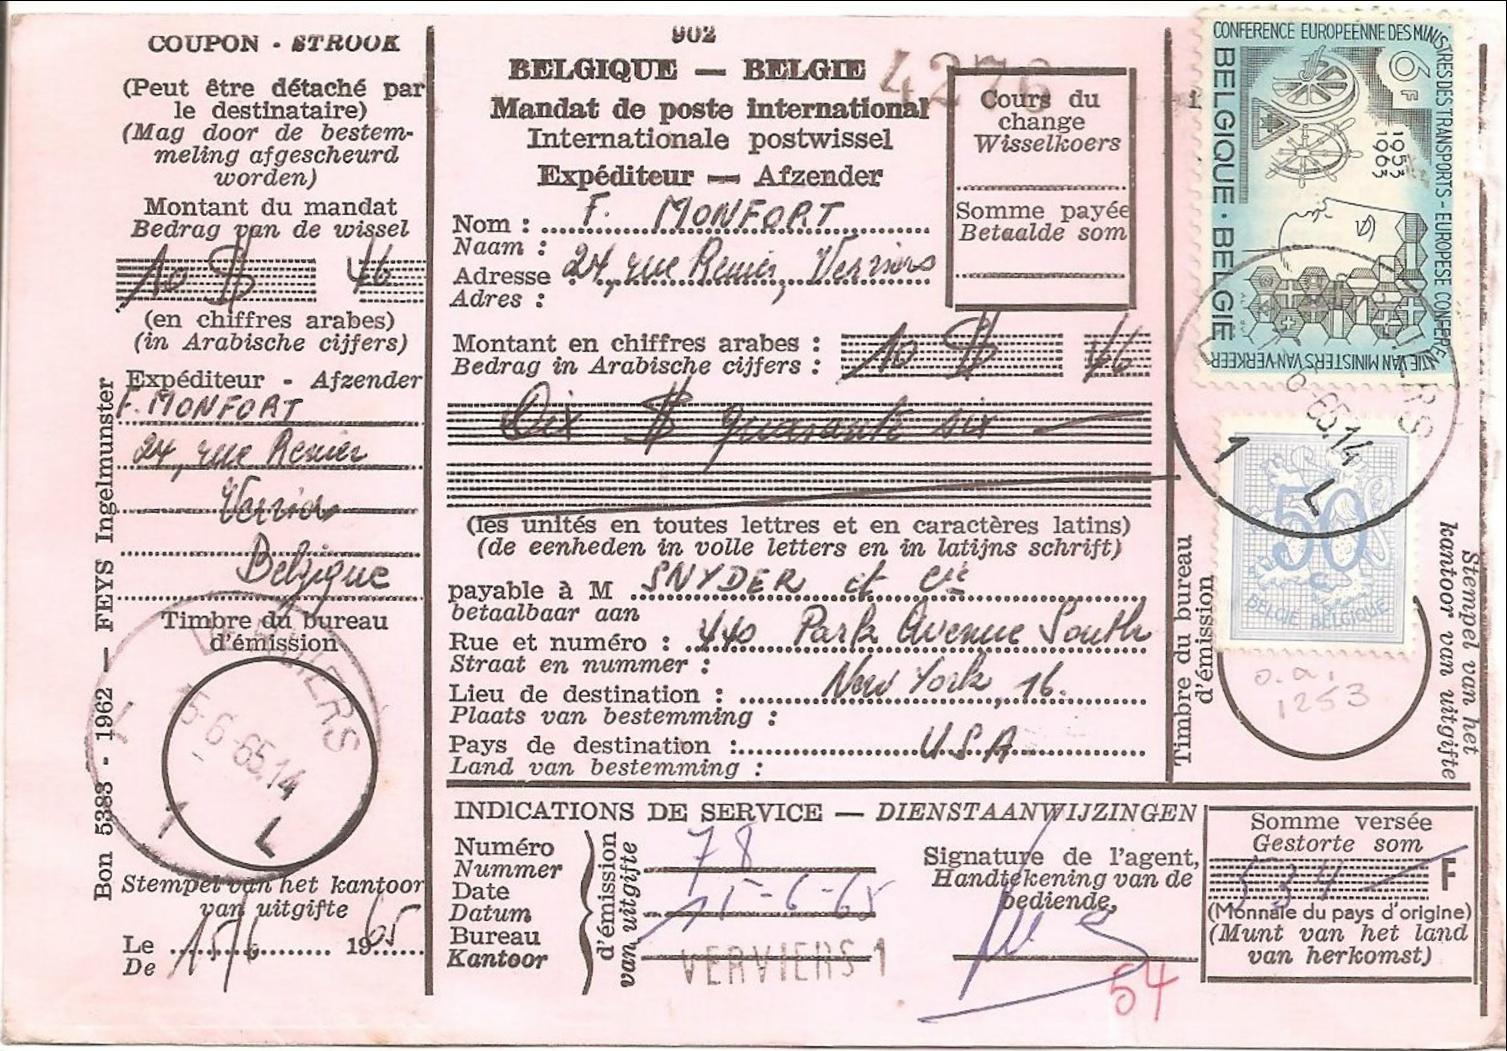 COUPON - STROOK
(Peut être détaché par
le destinataire)
(Mag door de bestem-
meling afgescheurd
worden)
Montant du mandat
Bedrag van de wissel
10 $ 46
(en chiffres arabes)
(in Arabische cijfers)
Expéditeur - Afzender
F. MONFORT
24, rue Renier
Verviers
Belgique
Timbre du bureau
d'émission
VERVIERS
15-6-65.14
1 L
1
Stempel van het kantoor
van uitgifte
Le 15/6 1965
De
Bon 5383 - 1962 — FEYS Ingelmunster
902
BELGIQUE — BELGIE
4276
Mandat de poste international
Internationale postwissel
Expéditeur — Afzender
Nom : F. MONFORT
Naam :
Adresse 24, rue Renier, Verviers
Adres :
Cours du
change
Wisselkoers
Somme payée
Betaalde som
Montant en chiffres arabes : 10 $ 46
Bedrag in Arabische cijfers :
Dix $ quarante six
(les unités en toutes lettres et en caractères latins)
(de eenheden in volle letters en in latijns schrift)
payable à M SNYDER et Cie
betaalbaar aan
Rue et numéro : 440 Park Avenue South
Straat en nummer :
Lieu de destination : New York, 16.
Plaats van bestemming :
Pays de destination : USA
Land van bestemming :
CONFERENCE EUROPEENNE DES MINISTRES DES TRANSPORTS - EUROPESE CONFERENTIE VAN MINISTERS VAN VERKEER
6F
1953
1963
BELGIQUE · BELGIE
6-65.14
1 L
50
BELGIE BELGIQUE
o.a.
1253
Timbre du bureau
d'émission
Stempel van het
kantoor van uitgifte
INDICATIONS DE SERVICE — DIENSTAANWIJZINGEN
Numéro 78
Nummer
Date 15-6-65
Datum
Bureau VERVIERS 1
Kantoor
d'émission
van uitgifte
Signature de l'agent,
Handtekening van de
bediende,
54
Somme versée
Gestorte som
534 F
(Monnaie du pays d'origine)
(Munt van het land
van herkomst)